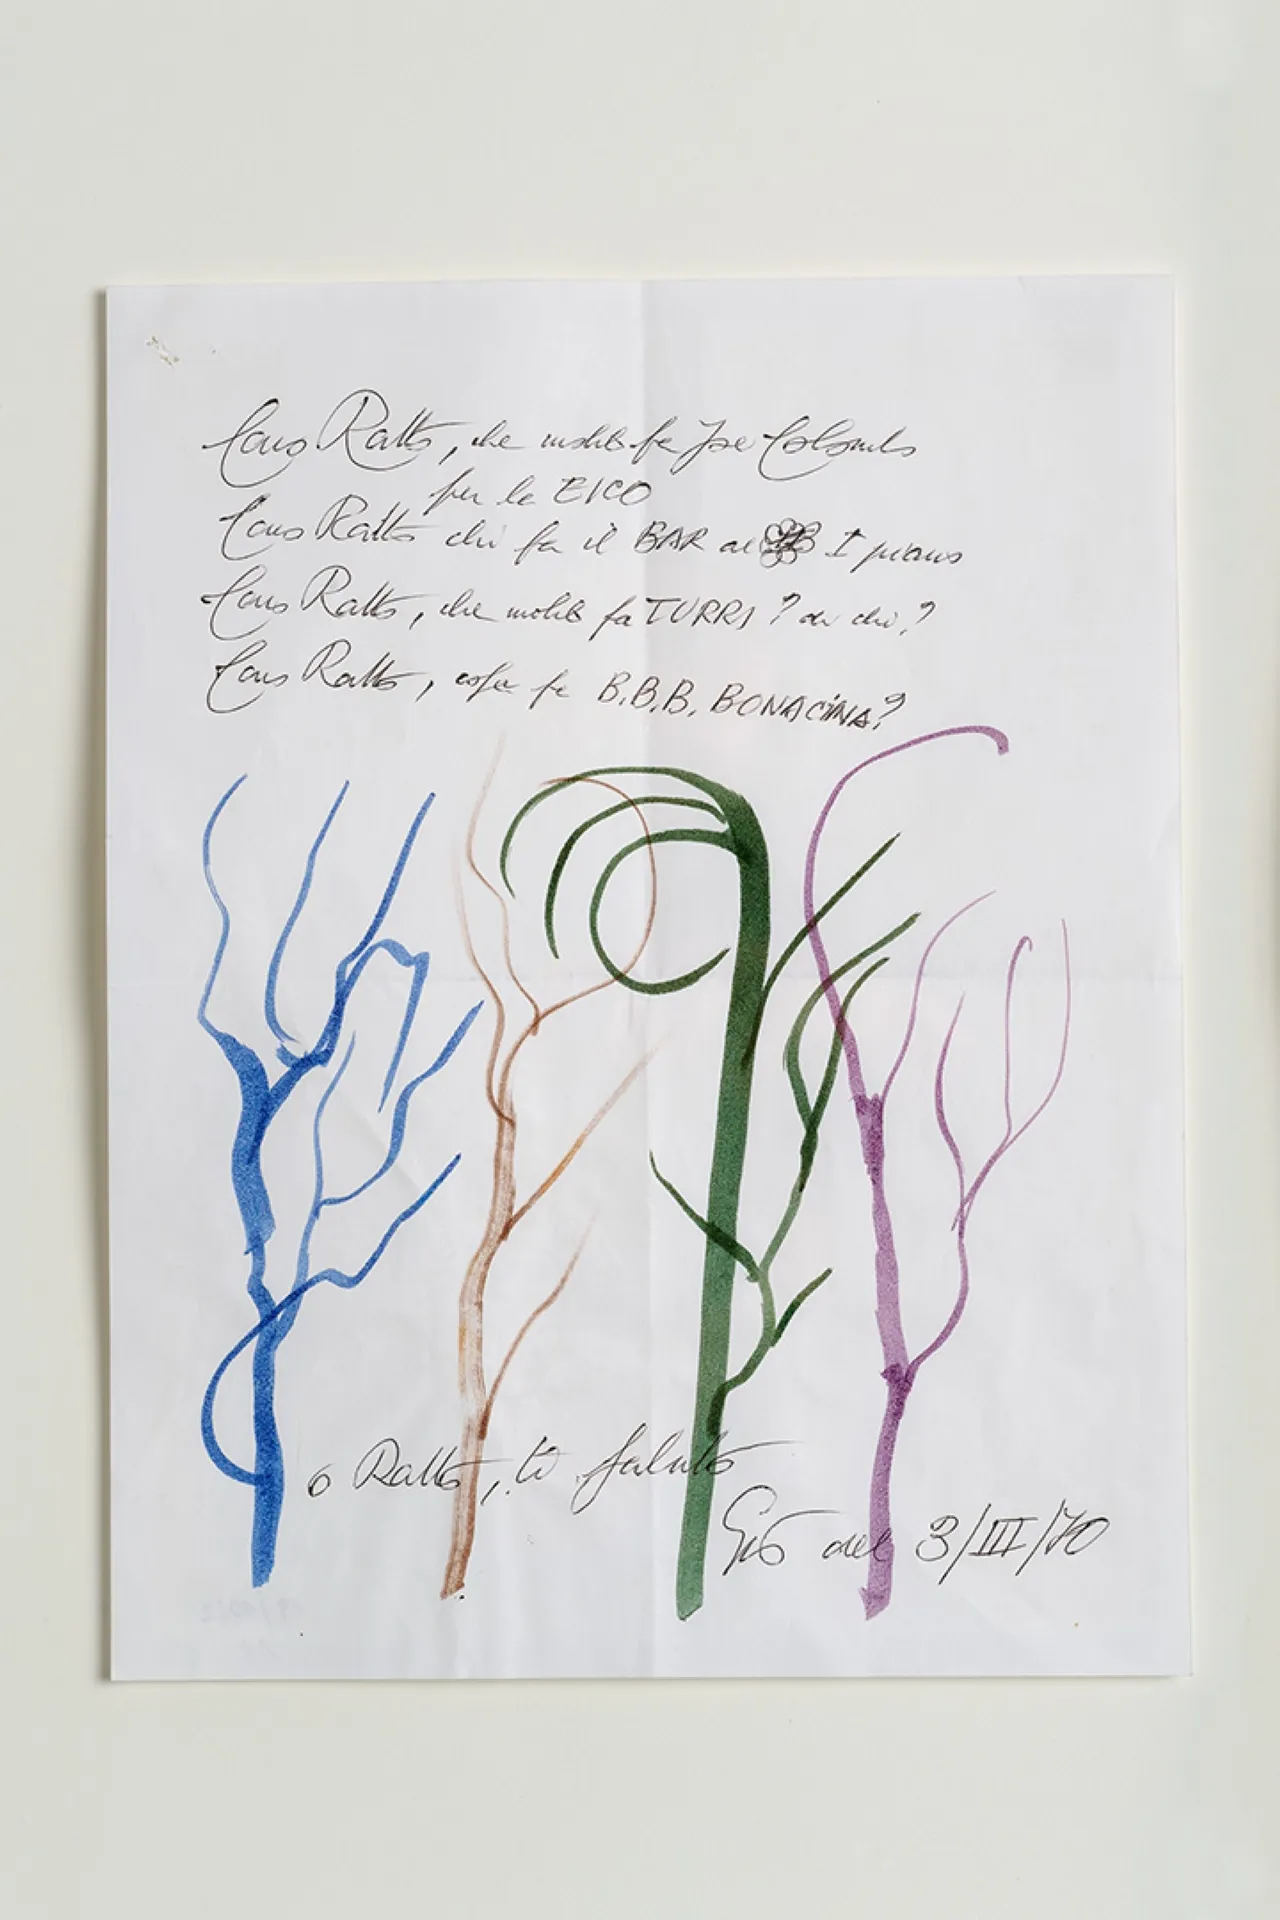 Caro Ratto, che mobili fa Joe Colombo
per la ELCO
Caro Ratto chi fa il BAR al I piano
Caro Ratto, che mobili fa TURRI? di chi?
Caro Ratto, cosa fa B.B.B. BONACINA?
o Ratto, ti saluto
Gio del 3/III/70